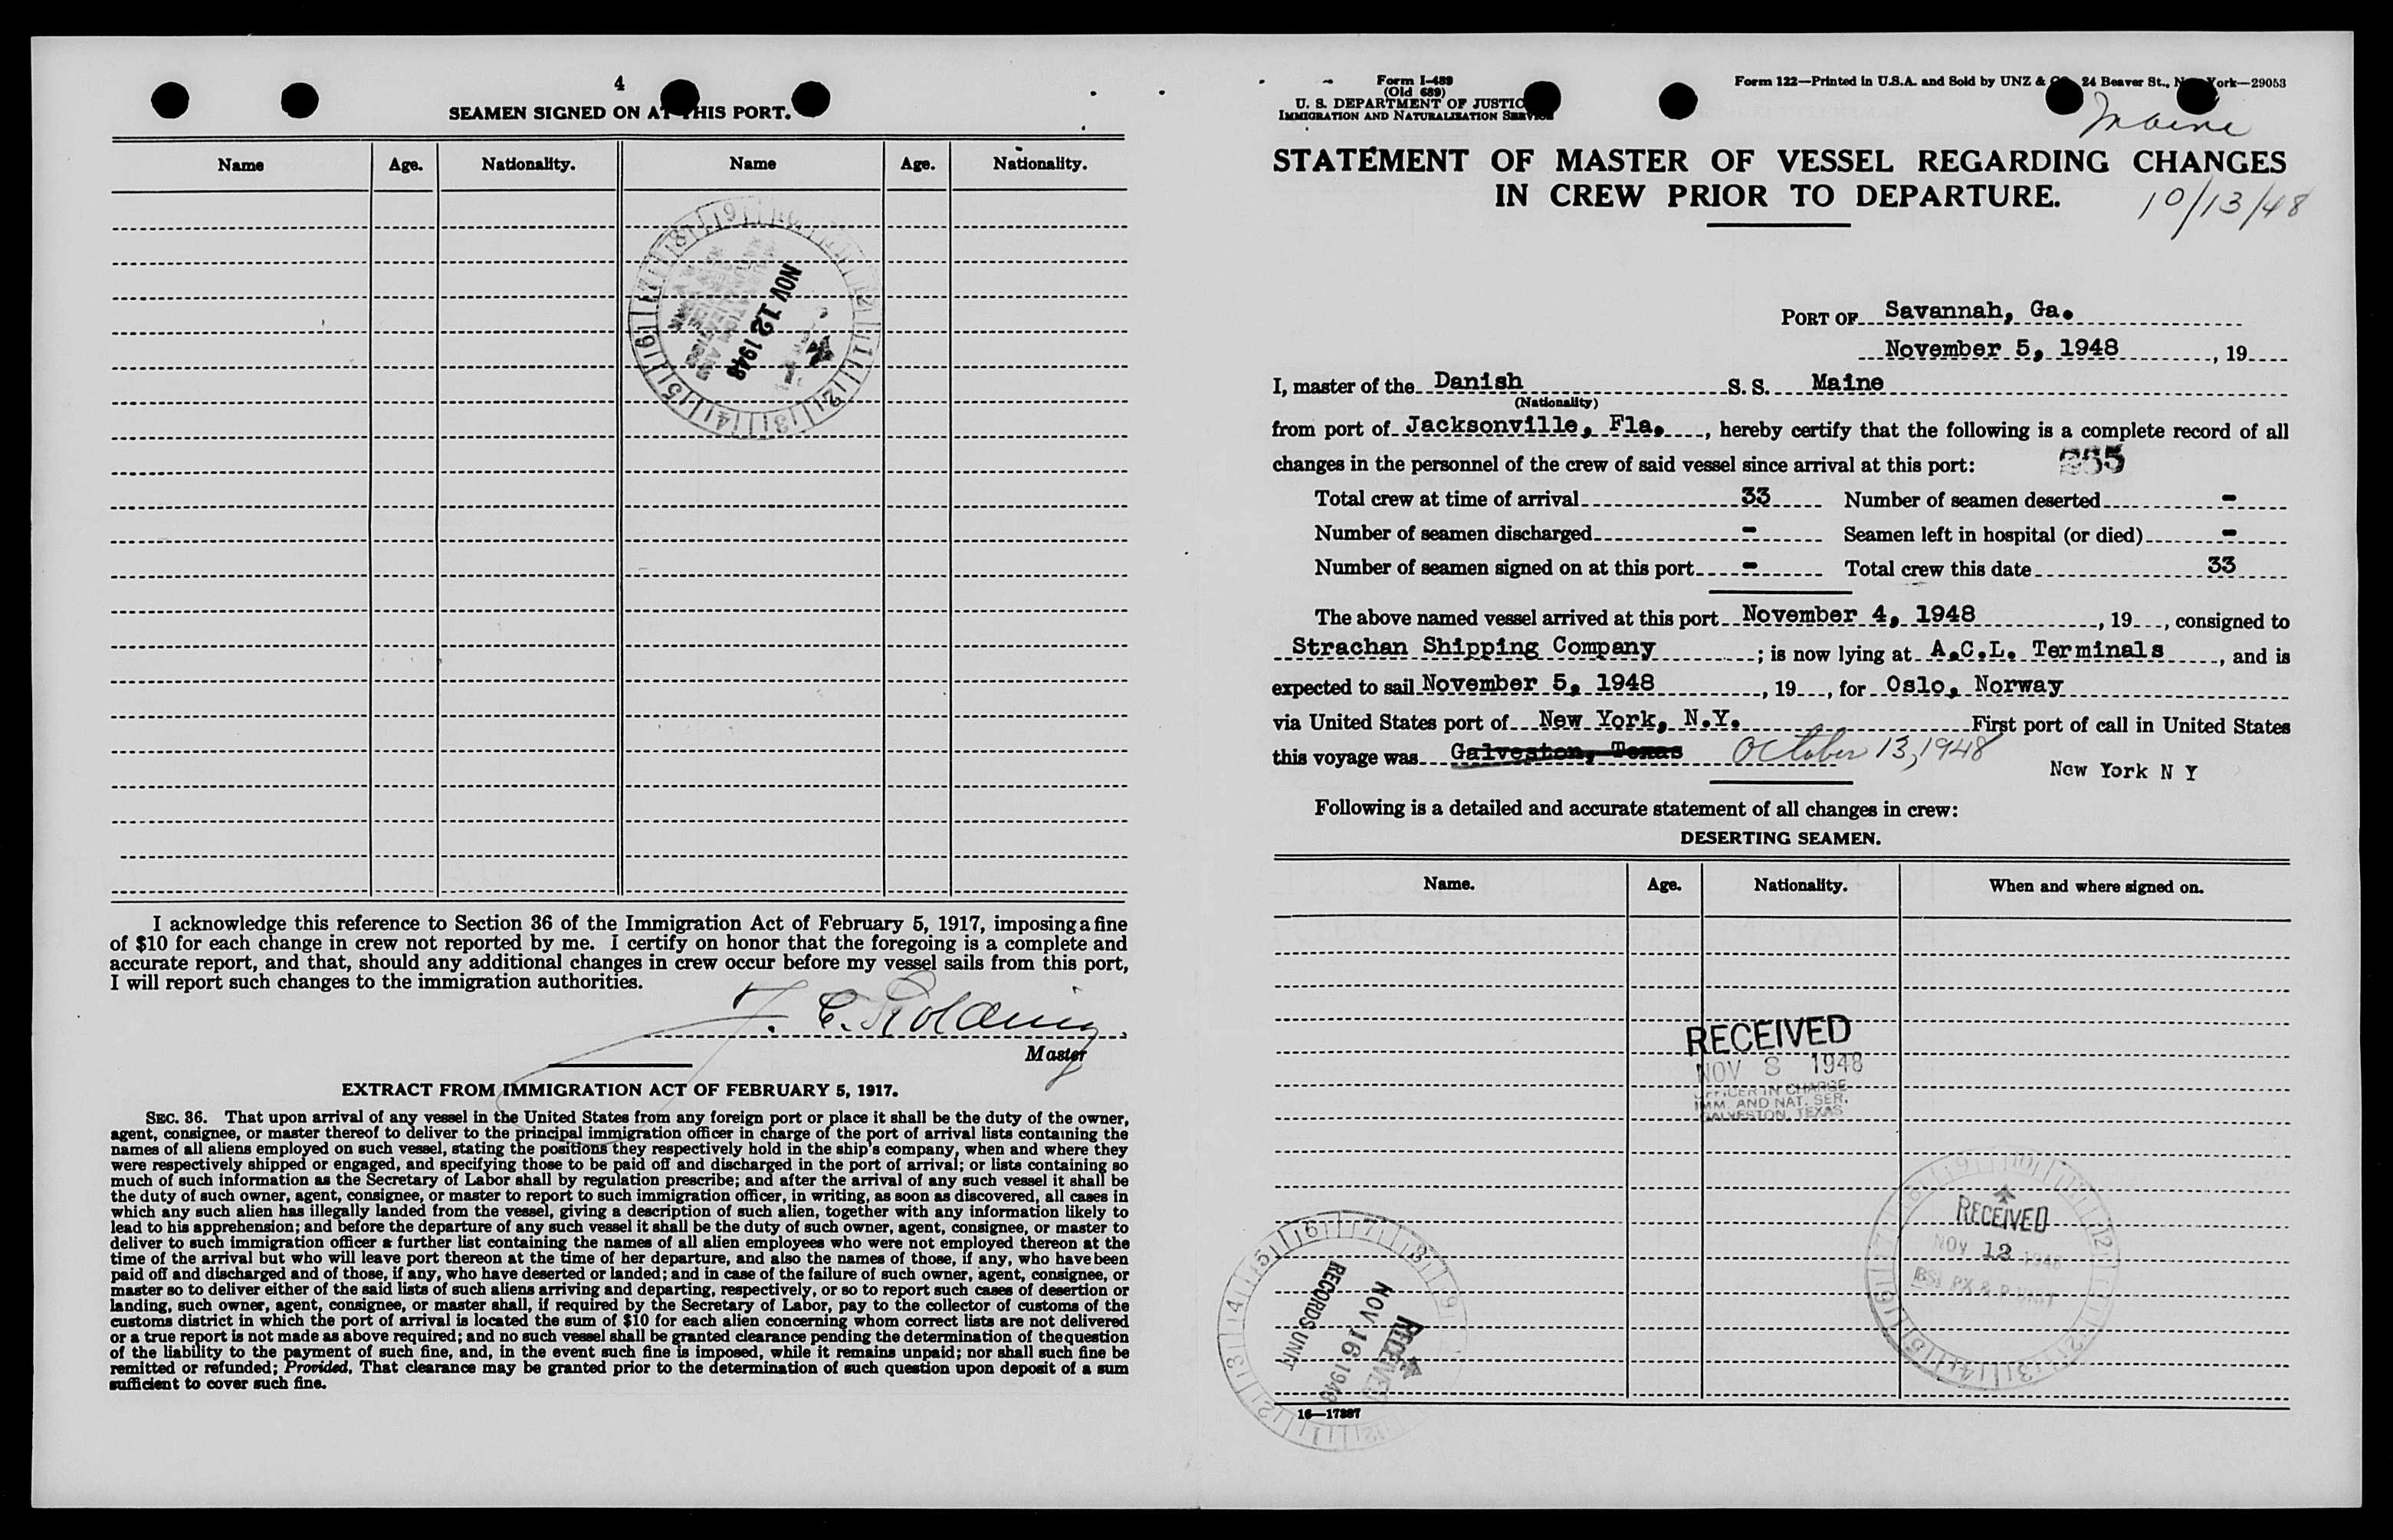 4
SEAMEN SIGNED ON AT THIS PORT.
Name Age. Nationality. Name Age. Nationality.
NOV 12 1948
I acknowledge this reference to Section 36 of the Immigration Act of February 5, 1917, imposing a fine
of $10 for each change in crew not reported by me. I certify on honor that the foregoing is a complete and
accurate report, and that, should any additional changes in crew occur before my vessel sails from this port,
I will report such changes to the immigration authorities.
Master
EXTRACT FROM IMMIGRATION ACT OF FEBRUARY 5, 1917.
SEC. 36. That upon arrival of any vessel in the United States from any foreign port or place it shall be the duty of the owner,
agent, consignee, or master thereof to deliver to the principal immigration officer in charge of the port of arrival lists containing the
names of all aliens employed on such vessel, stating the positions they respectively hold in the ship's company, when and where they
were respectively shipped or engaged, and specifying those to be paid off and discharged in the port of arrival; or lists containing so
much of such information as the Secretary of Labor shall by regulation prescribe; and after the arrival of any such vessel it shall be
the duty of such owner, agent, consignee, or master to report to such immigration officer, in writing, as soon as discovered, all cases in
which any such alien has illegally landed from the vessel, giving a description of such alien, together with any information likely to
lead to his apprehension; and before the departure of any such vessel it shall be the duty of such owner, agent, consignee, or master to
deliver to such immigration officer a further list containing the names of all alien employees who were not employed thereon at the
time of the arrival but who will leave port thereon at the time of her departure, and also the names of those, if any, who have been
paid off and discharged and of those, if any, who have deserted or landed; and in case of the failure of such owner, agent, consignee, or
master so to deliver either of the said lists of such aliens arriving and departing, respectively, or so to report such cases of desertion or
landing, such owner, agent, consignee, or master shall, if required by the Secretary of Labor, pay to the collector of customs of the
customs district in which the port of arrival is located the sum of $10 for each alien concerning whom correct lists are not delivered
or a true report is not made as above required; and no such vessel shall be granted clearance pending the determination of the question
of the liability to the payment of such fine, and, in the event such fine is imposed, while it remains unpaid; nor shall such fine be
remitted or refunded; Provided, That clearance may be granted prior to the determination of such question upon deposit of a sum
sufficient to cover such fine.
Form I-489
(Old 689)
U. S. DEPARTMENT OF JUSTICE
IMMIGRATION AND NATURALIZATION SERVICE
Form 122—Printed in U.S.A. and Sold by UNZ & CO. 24 Beaver St., New York—29053
Maine
STATEMENT OF MASTER OF VESSEL REGARDING CHANGES
IN CREW PRIOR TO DEPARTURE.
10/13/48
PORT OF Savannah, Ga.
November 5, 1948, 19
I, master of the Danish S. S. Maine
(Nationality)
from port of Jacksonville, Fla., hereby certify that the following is a complete record of all
changes in the personnel of the crew of said vessel since arrival at this port:
Total crew at time of arrival 33 Number of seamen deserted -
Number of seamen discharged - Seamen left in hospital (or died) -
Number of seamen signed on at this port - Total crew this date 33
The above named vessel arrived at this port November 4, 1948, 19, consigned to
Strachan Shipping Company; is now lying at A.C.L. Terminals, and is
expected to sail November 5, 1948, 19, for Oslo, Norway
via United States port of New York, N.Y. First port of call in United States
this voyage was Galveston, Texas October 13, 1948
New York N Y
Following is a detailed and accurate statement of all changes in crew:
DESERTING SEAMEN.
Name. Age. Nationality. When and where signed on.
RECEIVED
NOV 8 1948
OFFICER IN CHARGE
IMM. AND NAT. SER.
GALVESTON, TEXAS
RECEIVED
NOV 12 1948
RECEIVED
NOV 16 1948
RECORDS UNIT
16—17397